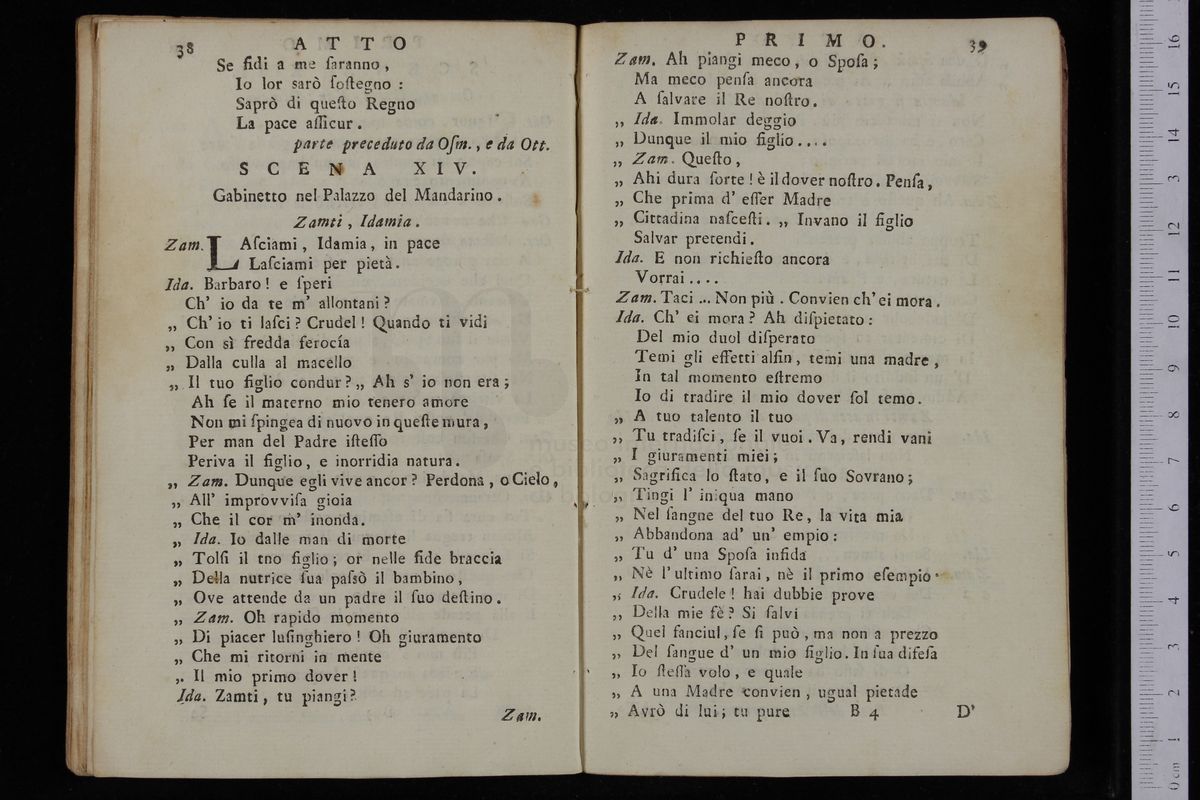 38 ATTO
Se fidi a me ſaranno,
Io lor sarò ſoſtegno :
Saprò di queſto Regno
La pace aſſicur.
parte preceduto da Oſm., e da Ott.
SCENA XIV.
Gabinetto nel Palazzo del Mandarino.
Zamti, Idamia.
Zam. LAſciami, Idamia, in pace
Laſciami per pietà.
Ida. Barbaro! e ſperi
Ch' io da te m' allontani?
„ Ch' io ti laſci? Crudel! Quando ti vidi
„ Con sì fredda ferocía
„ Dalla culla al macello
„ Il tuo figlio condur?„ Ah s' io non era;
Ah ſe il materno mio tenero amore
Non mi ſpingea di nuovo in queſte mura,
Per man del Padre iſteſſo
Periva il figlio, e inorridia natura.
„ Zam. Dunque egli vive ancor? Perdona, o Cielo,
„ All' improvviſa gioia
„ Che il cor m' inonda.
„ Ida. Io dalle man di morte
„ Tolſi il tno figlio; or nelle fide braccia
„ Della nutrice ſua paſsò il bambino,
„ Ove attende da un padre il ſuo deſtino.
„ Zam. Oh rapido momento
„ Di piacer luſinghiero! Oh giuramento
„ Che mi ritorni in mente
„. Il mio primo dover!
Ida. Zamti, tu piangi?
Zam.
PRIMO. 39
Zam. Ah piangi meco, o Spoſa;
Ma meco penſa ancora
A ſalvare il Re noſtro.
„ Ida. Immolar deggio
„ Dunque il mio figlio....
„ Zam. Queſto,
„ Ahi dura ſorte! è il dover noſtro. Penſa,
„ Che prima d' eſſer Madre
„ Cittadina naſceſti. „ Invano il figlio
Salvar pretendi.
Ida. E non richieſto ancora
Vorrai....
Zam. Taci ... Non più. Convien ch' ei mora.
Ida. Ch' ei mora? Ah diſpietato:
Del mio duol diſperato
Temi gli effetti alfin, temi una madre,
In tal momento eſtremo
Io di tradire il mio dover ſol temo.
„ A tuo talento il tuo
„ Tu tradiſci, ſe il vuoi. Va, rendi vani
„ I giuramenti miei;
„ Sagrifica lo ſtato, e il ſuo Sovrano;
„ Tingi l' iniqua mano
„ Nel ſangne del tuo Re, la vita mia
„ Abbandona ad' un' empio:
„ Tu d' una Spoſa infida
„ Nè l' ultimo ſarai, nè il primo eſempio.
„ Ida. Crudele! hai dubbie prove
„ Della mie fè? Si ſalvi
„ Quel fanciul, ſe ſi può, ma non a prezzo
„ Del ſangue d' un mio figlio. In ſua difeſa
„ Io ſteſſa volo, e quale
„ A una Madre convien, ugual pietade
„ Avrò di lui; tu pure B 4 D'